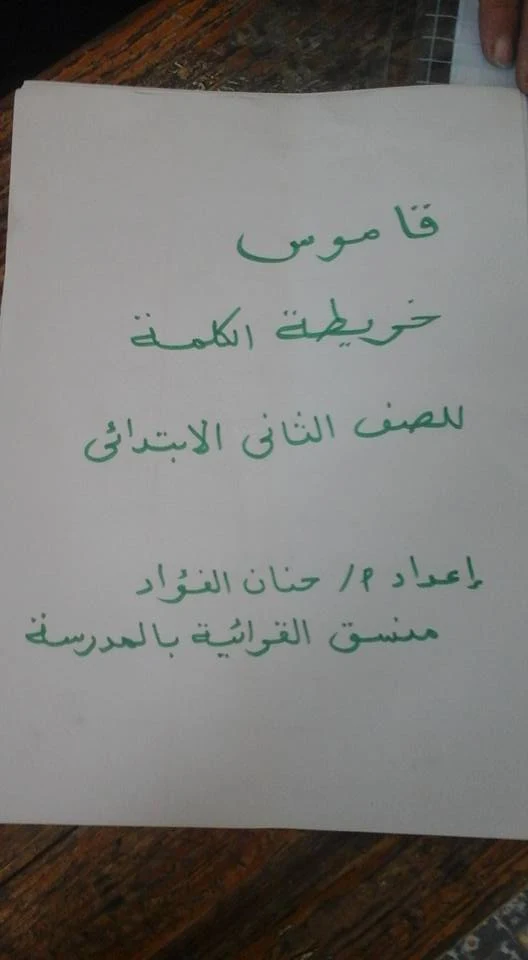 قاموس
خريطة الكلمة
للصف الثانى الابتدائى
إعداد م/ حنان الفؤاد
منسق القرائية بالمدرسة